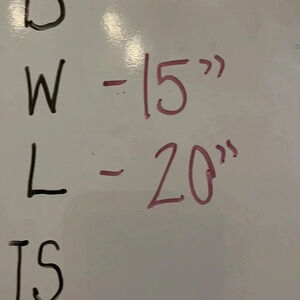 W - 15"
L - 20"
TS